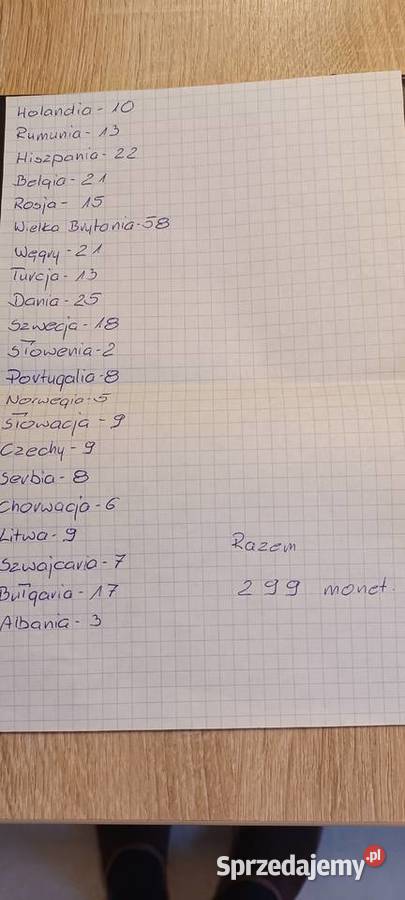 Holandia - 10
Rumunia - 13
Hiszpania - 22
Belgia - 21
Rosja - 15
Wielka Brytania - 58
Węgry - 21
Turcja - 13
Dania - 25
Szwecja - 18
Słowenia - 2
Portugalia - 8
Norwegia - 5
Słowacja - 9
Czechy - 9
Serbia - 8
Chorwacja - 6
Litwa - 9
Szwajcaria - 7
Bułgaria - 17
Albania - 3
Razem
299 monet.
Sprzedajemy.pl